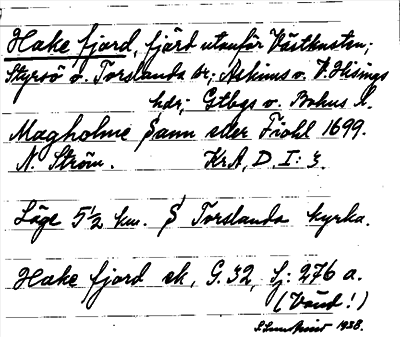 Hake fjord, fjärd utanför Västkusten;
Styrsö o. Torslanda sr; Askims o. V. Hisings
hdr; Gtbgs o. Bohus l.
Magholme Sann eller Fiohl 1699.
N. Ström. KrA, D. I: 3.
Läge 5½ km. S Torslanda kyrka.
Hake fjord sk, G. 32, Sj: 276 a.
(Vänd!)
1938.